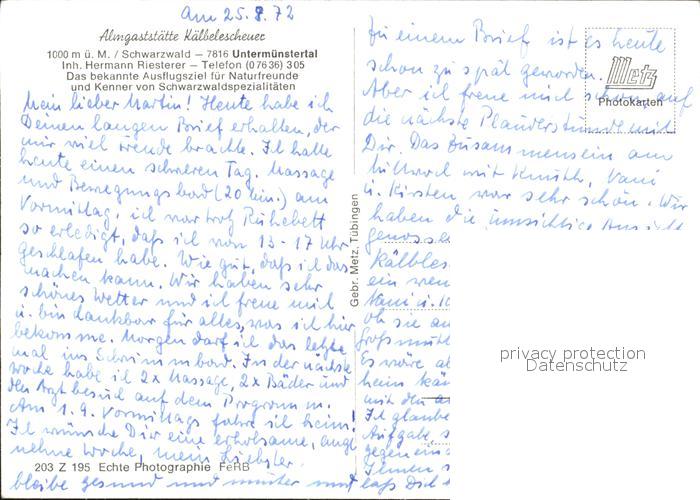 Am 25.8.72
Almgaststätte Kälbelescheuer
1000 m ü. M. / Schwarzwald – 7816 Untermünstertal
Inh. Hermann Riesterer – Telefon (07636) 305
Das bekannte Ausflugsziel für Naturfreunde
und Kenner von Schwarzwaldspezialitäten
Mein lieber Martin! Heute habe ich
Deinen langen Brief erhalten, der
mir viel Freude brachte. Ich hatte
heute einen schweren Tag. Massage
und Bewegungsbad (20 Min.) am
Vormittag. ich war trotz Ruhebett
so erledigt, daß ich von 13-17 Uhr
geschlafen habe. Wie gut, daß ich das
machen kann. Wir haben sehr
schönes Wetter und ich freue mich
u. bin dankbar für alles, was ich hier
bekomme. Morgen darf ich das letzte
mal ins Schwimmbad. In der nächste
Woche habe ich 2x Massage, 2x Bäder und
den Arztbesuch auf dem Programm.
Am 1.9. Vormittags fahre ich heim!
Ich wünsche Dir eine erholsame, ange
nehme Woche, mein Liebster.
203 Z 195 Echte Photographie FeRB
bleibe gesund und munter und
Gebr. Metz, Tübingen
zu einem Brief ist es heute
schon zu spät geworden.
Aber ich freue mich schon auf
die nächste Plauderstunde mit
Dir. Das Zusammensein am
mit
u. Kirsten war sehr schön. Wir
haben die
genosse
Kälbles
ein wen
ob sie au
Es wäre a
heim kä
mit den a
Ich glaube
Aufgabe, s
gegen ein
Ihnen s
laß Dich
Metz
Photokarten
privacy protection
Datenschutz